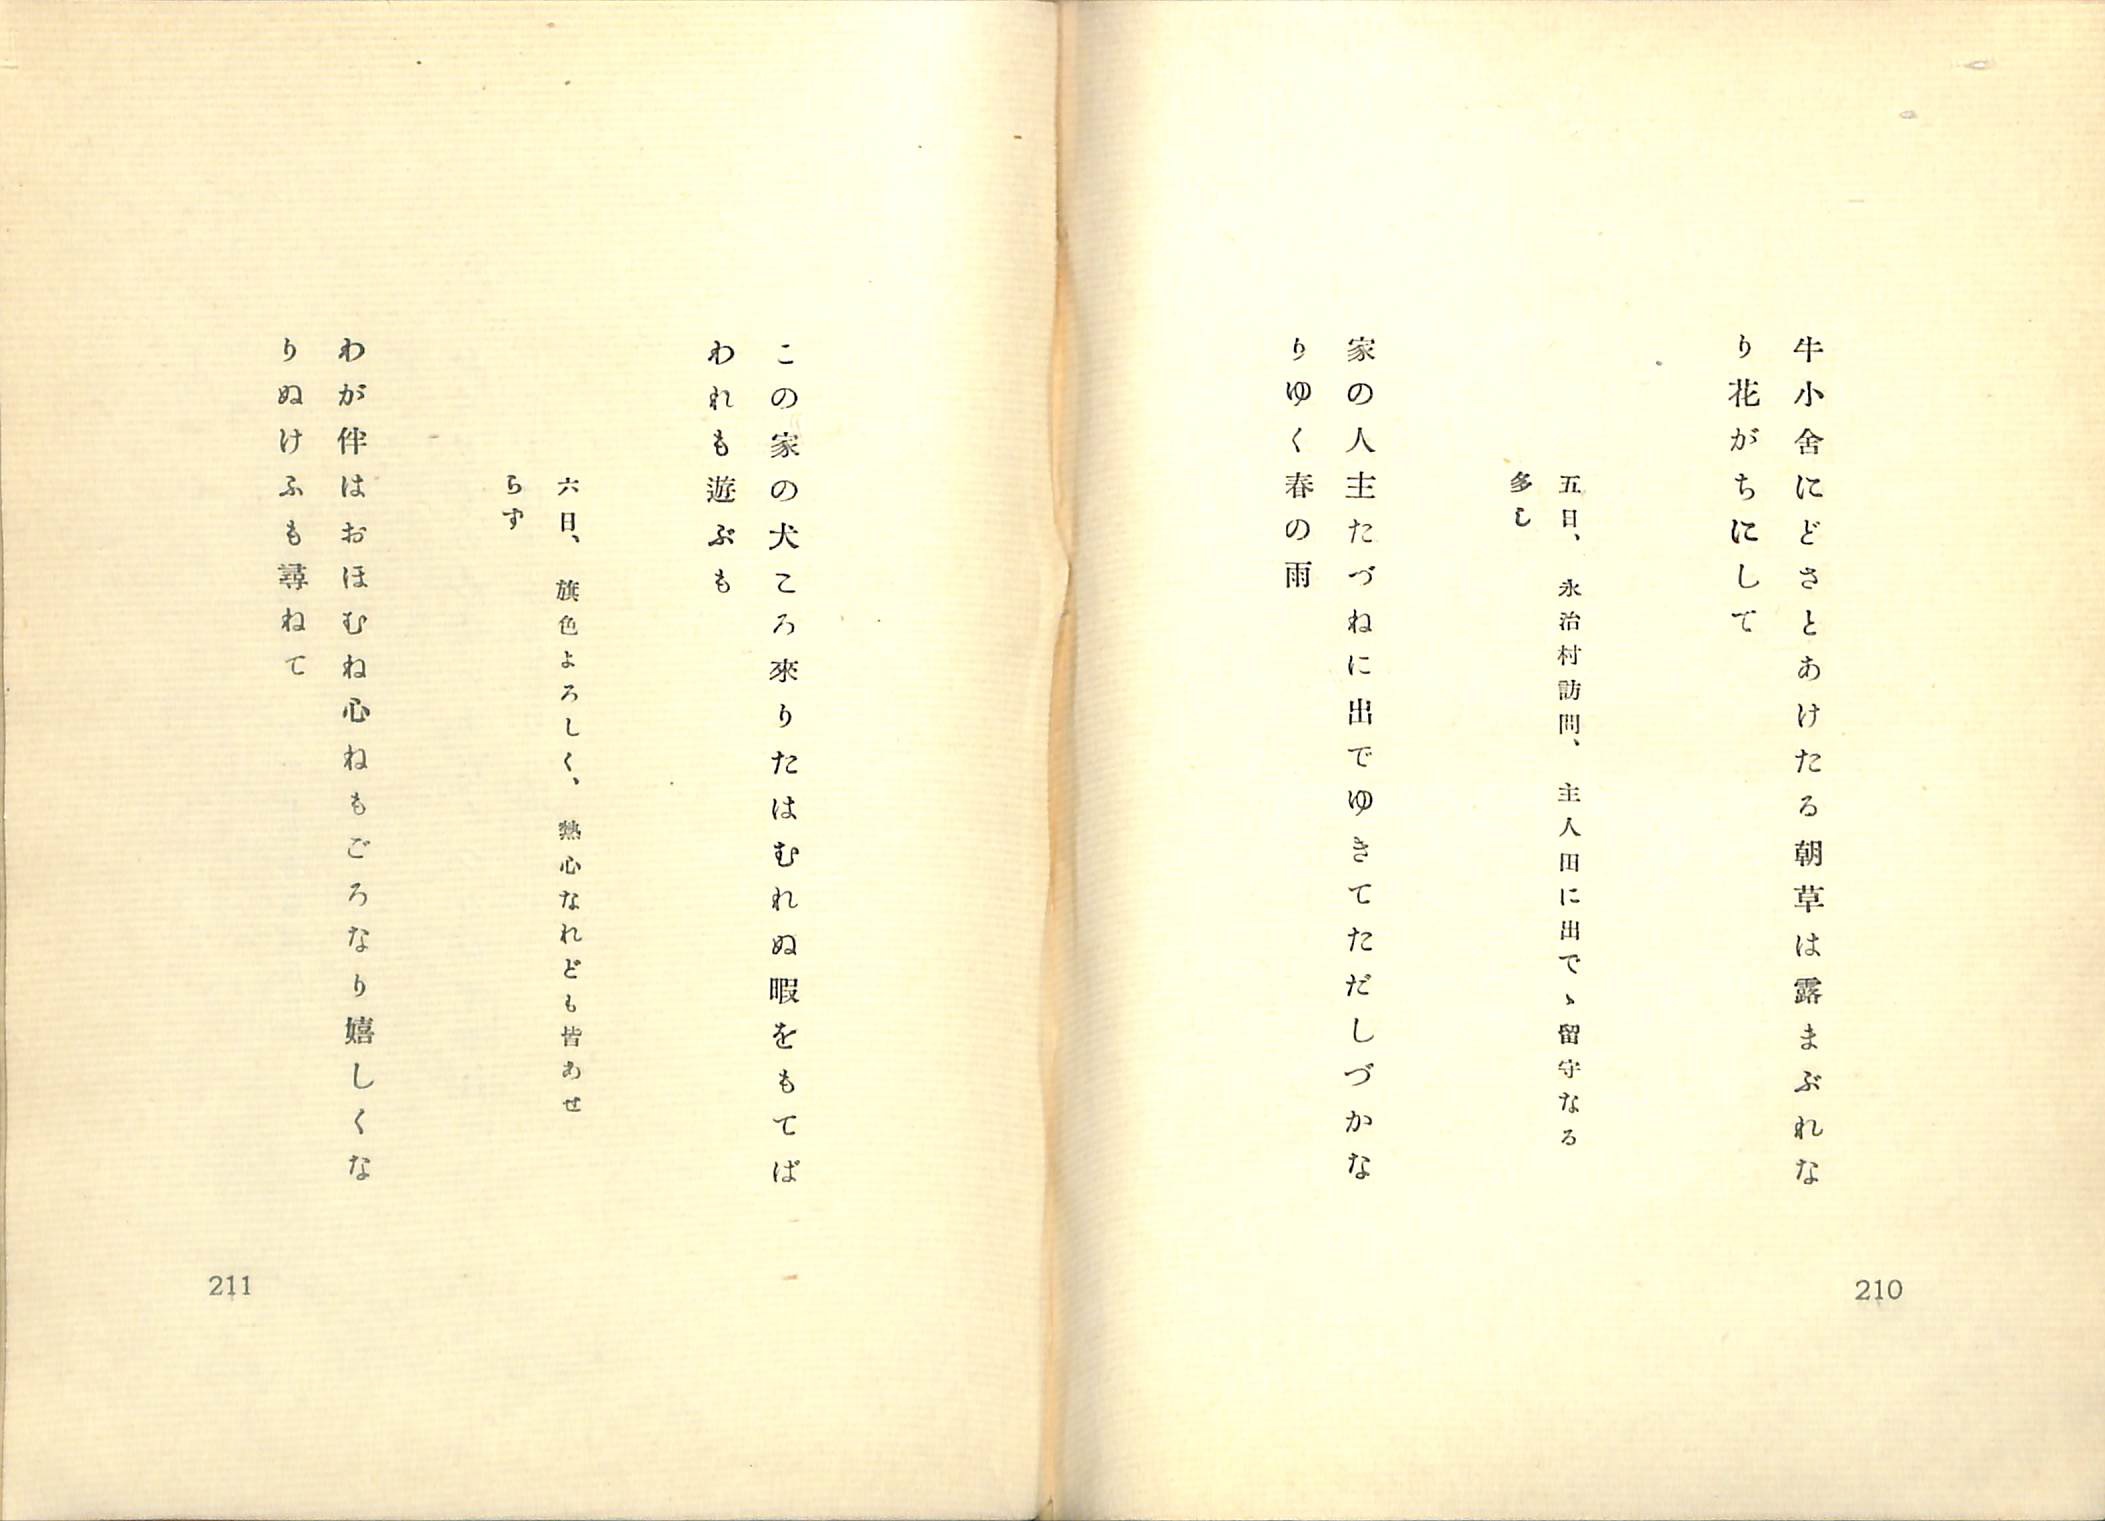 牛小舍にどさとあけたる朝草は露まぶれな
り花がちにして
五日、永治村訪問、主人田に出でゝ留守なる
多し
家の人主たづねに出でゆきてただしづかな
りゆく春の雨
210
この家の犬ころ來りたはむれぬ暇をもてば
われも遊ぶも
六日、旗色よろしく、熱心なれども皆あせ
らず
わが伴はおほむね心ねもごろなり嬉しくな
りぬけふも尋ねて
211